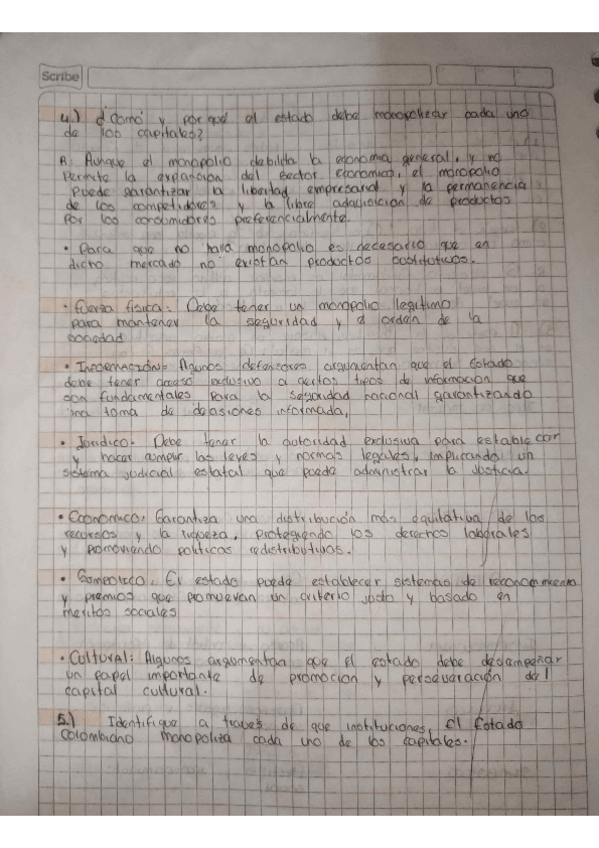 Scribe
4.) ¿Como y por qué el estado debe monopolizar cada uno
de los capitales?
R: Aunque el monopolio debilita la economía general, y no
Permite la expansión del Sector económico, el monopolio
Puede garantizar la libertad empresarial y la permanencia
de los competidores y la libre adquisición de productos
Por los consumidores preferencialmente.
• Para que no haia monopolio es necesario que en
dicho mercado no existan productos sustitutivos.
• Fuerza física: Debe tener un monopolio legitimo
para mantener la seguridad y el orden de la
sociedad
• Información: Algunos defensores argumentan que el Estado
debe tener acceso exclusivo a ciertos tipos de información que
son fundamentales para la seguridad nacional garantizando
una toma de desiciones informada,
• Juridico: Debe tener la autoridad exclusiva para establecer
y hacer cumplir las leyes y normas legales, implicando un
sistema judicial estatal que pueda administrar la Justicia.
• Economico: Garantiza una distribución más equitativa de los
recursos y la riqueza, Protegiendo los derechos laborales
y promoviendo politicas redistributivas.
• Simbolico: El estado puede establecer sistemas de reconocimiento
y premios que promuevan un criterio justo y basado en
meritos sociales
• Cultural: Algunos argumentan que el estado debe desempeñar
un papel importante de promocion y perseveración del
capital cultural.
5.) Identifique a traves de que instituciones, El Estado
Colombiano monopoliza cada uno de los capitales.